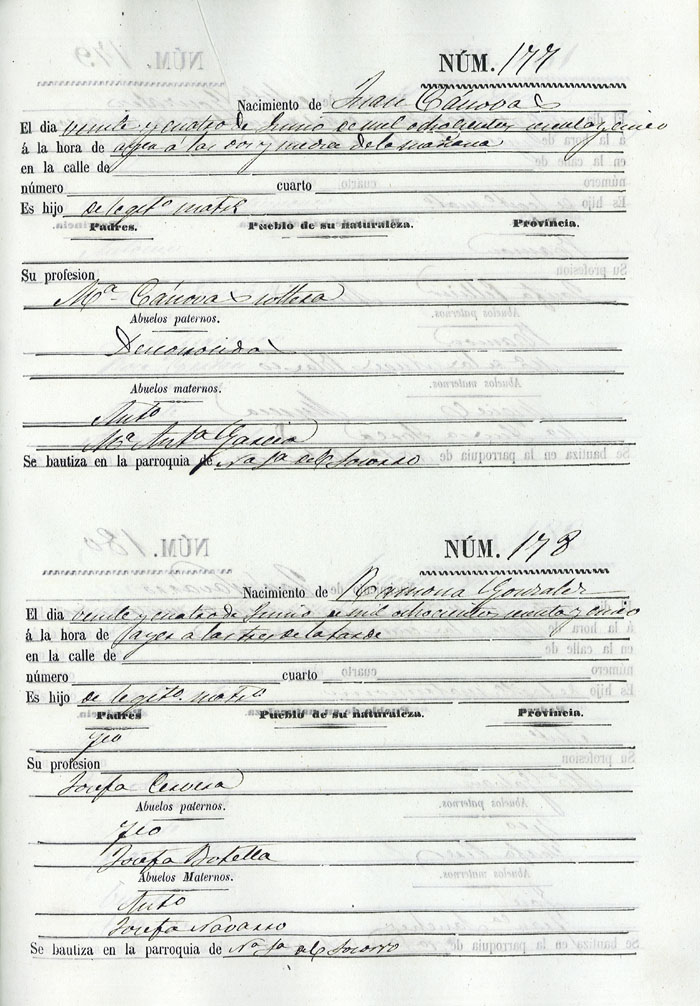 NÚM. 177
Nacimiento de Juan Cánovas
El dia veinte y cuatro de Junio de mil ochocientos sesenta y cinco
á la hora de ayer á las dos y media de la mañana
en la calle de
número cuarto
Es hijo de legit.º matr.º
Padres. Pueblo de su naturaleza. Provincia.
Su profesion
M.ª Cánovas soltera
Abuelos paternos.
Desconocidos
Abuelos maternos.
Ant.º
M.ª Ant.ª Garcia
Se bautiza en la parroquia de N.ª S.ª del Socorro
NÚM. 178
Nacimiento de Ramona Gonzalez
El dia veinte y cuatro de Junio de mil ochocientos sesenta y cinco
á la hora de ayer á las tres de la tarde
en la calle de
número cuarto
Es hijo de legit.º matr.º
Padres Pueblo de su naturaleza. Provincia.
Su profesion
Josefa Cervera
Abuelos paternos.
Josefa Botella
Abuelos Maternos.
Ant.º
Josefa Navarro
Se bautiza en la parroquia de N.ª S.ª del Socorro